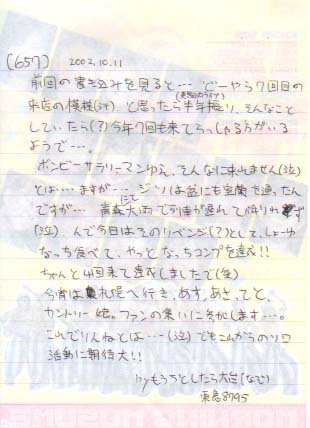 (657) 2002.10.11
前回の書き込みを見ると… どーやら7回目の
来店の模様(汗)、と思ったら半年振り、そんなこと
していたら(?)今年7回も来てらっしゃる方がいる
ようで…。
ボンビーサラリーマンゆえ、そんなに来れません(泣)
とは…ますが…、ジツは盆にも室蘭を通ったん
ですが… 青森大雨で列車が遅れて降りれず
(泣)、んで今日はそのリベンジ(?)として、しょーゆ
なっち食べて、やっとなっちコンプを達成!!
ちゃんと4回来て達成しましたで(笑)
今宵は札幌へ行き、あす、あさ、てと、
カントリー娘。ファンの集いに参加します…。
これでりんねとは…(泣) でもこれからのソロ
活動に期待大!!
byもうすぐとしたら大台(なぞ)
東急8795
MORNING MUSUME。